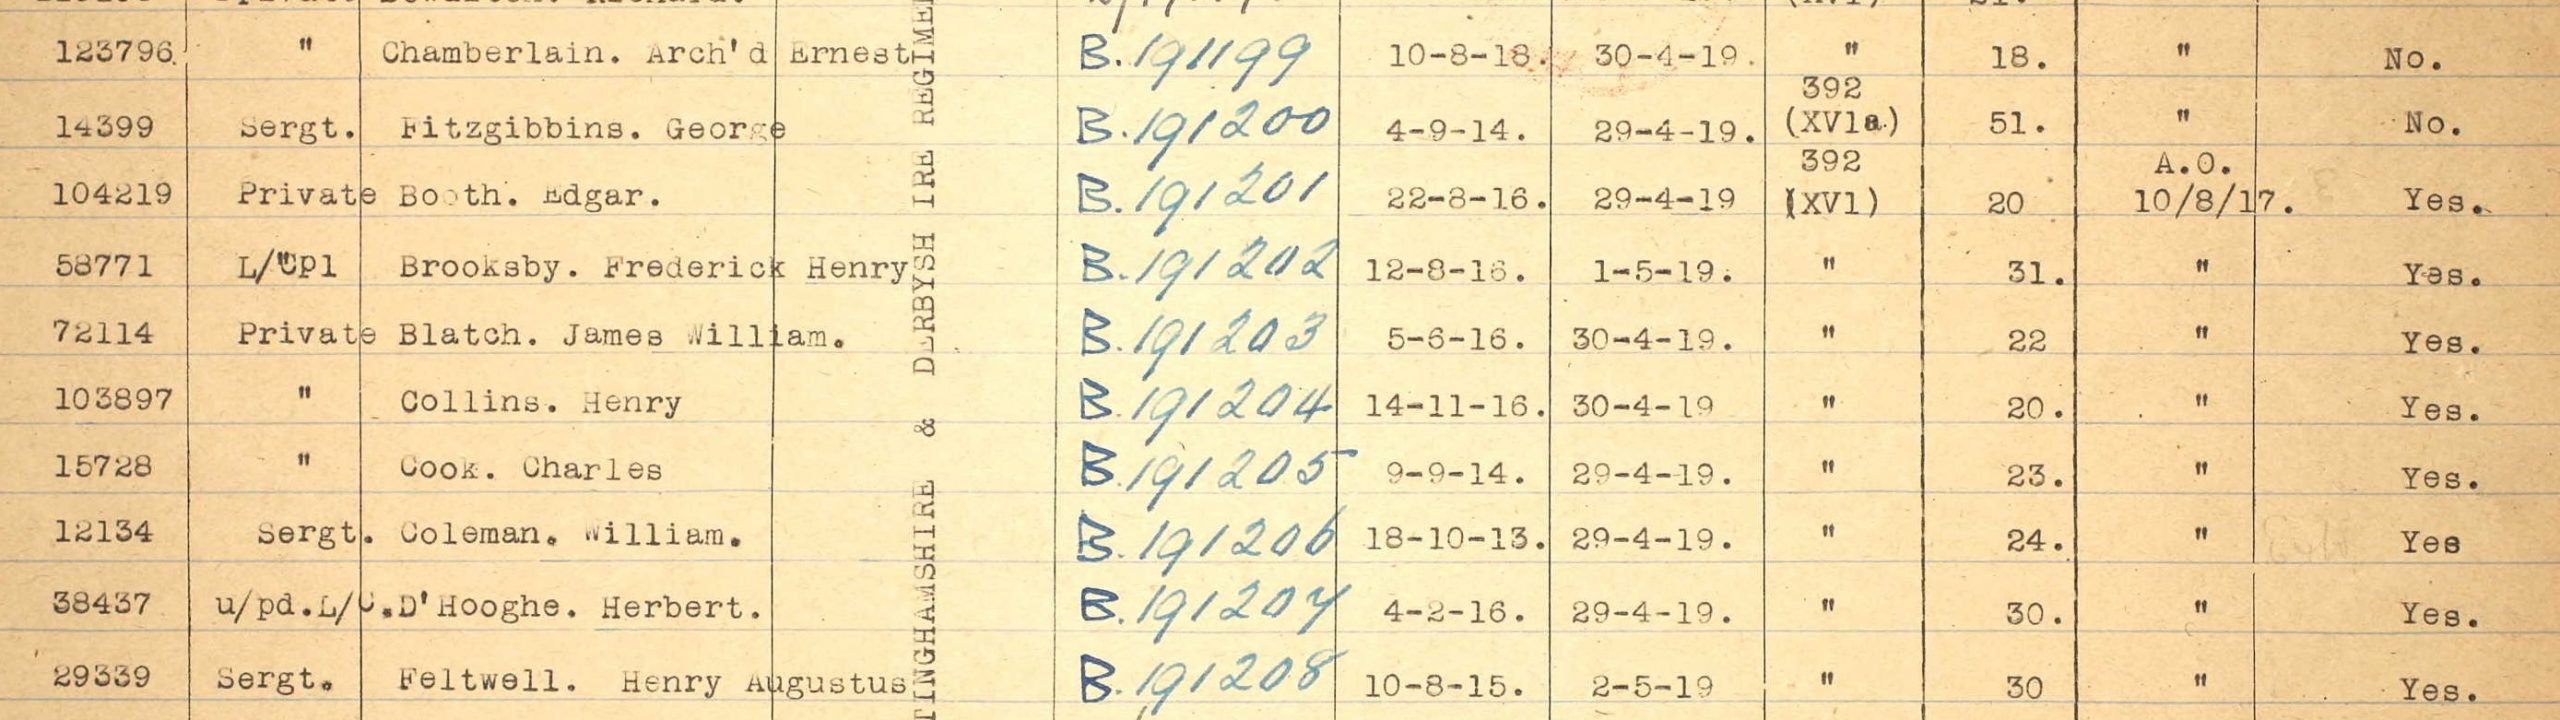 123796. " Chamberlain. Arch'd Ernest B.191199 10-8-18. 30-4-19. " 18. " No.
14399 Sergt. Fitzgibbins. George B.191200 4-9-14. 29-4-19. 392 (XV1a) 51. " No.
104219 Private Booth. Edgar. B.191201 22-8-16. 29-4-19 392 (XV1) 20 A.O. 10/8/17. Yes.
58771 L/Cpl Brooksby. Frederick Henry B.191202 12-8-16. 1-5-19. " 31. " Yes.
72114 Private Blatch. James William. B.191203 5-6-16. 30-4-19. " 22 " Yes.
103897 " Collins. Henry B.191204 14-11-16. 30-4-19 " 20. " Yes.
15728 " Cook. Charles B.191205 9-9-14. 29-4-19. " 23. " Yes.
12134 Sergt. Coleman. William. B.191206 18-10-13. 29-4-19. " 24. " Yes
38437 u/pd.L/C. D'Hooghe. Herbert. B.191207 4-2-16. 29-4-19. " 30. " Yes.
29339 Sergt. Feltwell. Henry Augustus B.191208 10-8-15. 2-5-19 " 30 " Yes.
TINGHAMSHIRE & DERBYSH IRE REGIME